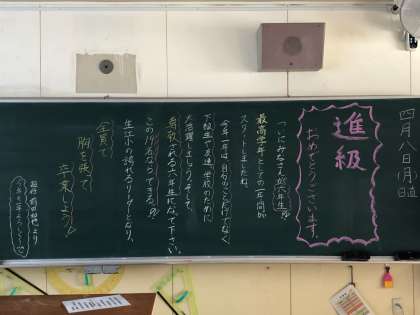 四月八日(月)
進級
おめでとうございます。
いよいよみなさんが六年生!!
最高学年としての一年間が
スタートしましたね。
今年一年は自分のことだけでなく
下級生や友達、学校のために
大活躍しましょう。そして、
尊敬される六年生になって下さい。
この19名ならできる!!
生江小の誇れるリーダーとなり、
全員で
胸を張って
卒業しよう!!
より